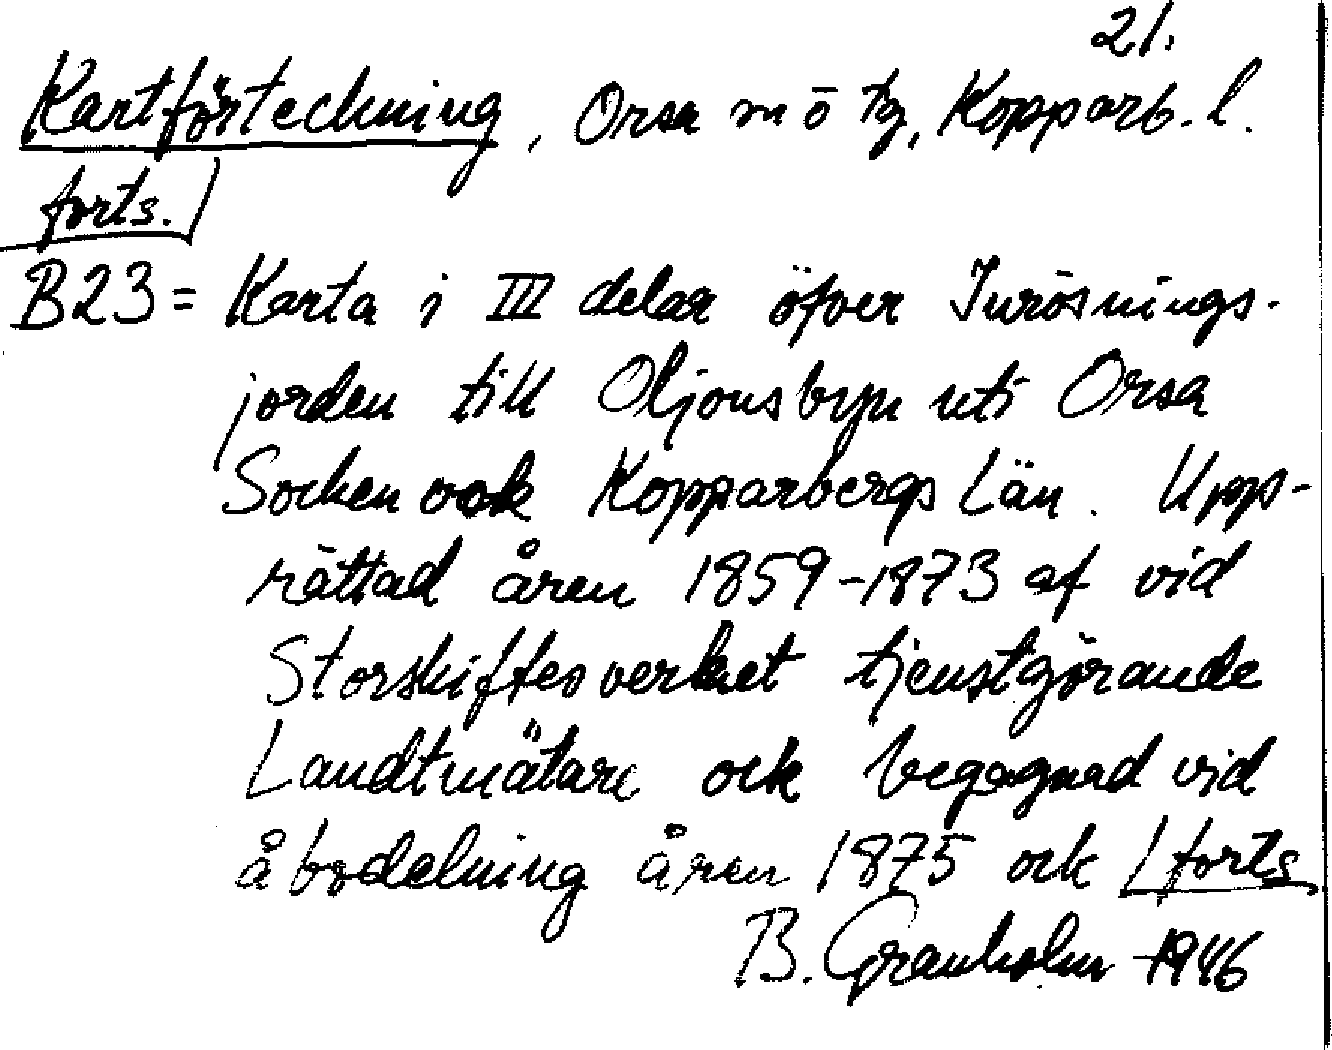 21.
Kartförteckning, Orsa m ö tg, Kopparb. l.
forts.
B23 = Karta i III delar öfver Inrösnings-
jorden till Oljonsbyn uti Orsa
Socken ock Kopparbergs Län. Upp-
rättad åren 1859-1873 af vid
Storskiftesverket tjenstgörande
Landtmätare ock begagnad vid
åbodelning åren 1875 ock forts
B. Granholm 1946